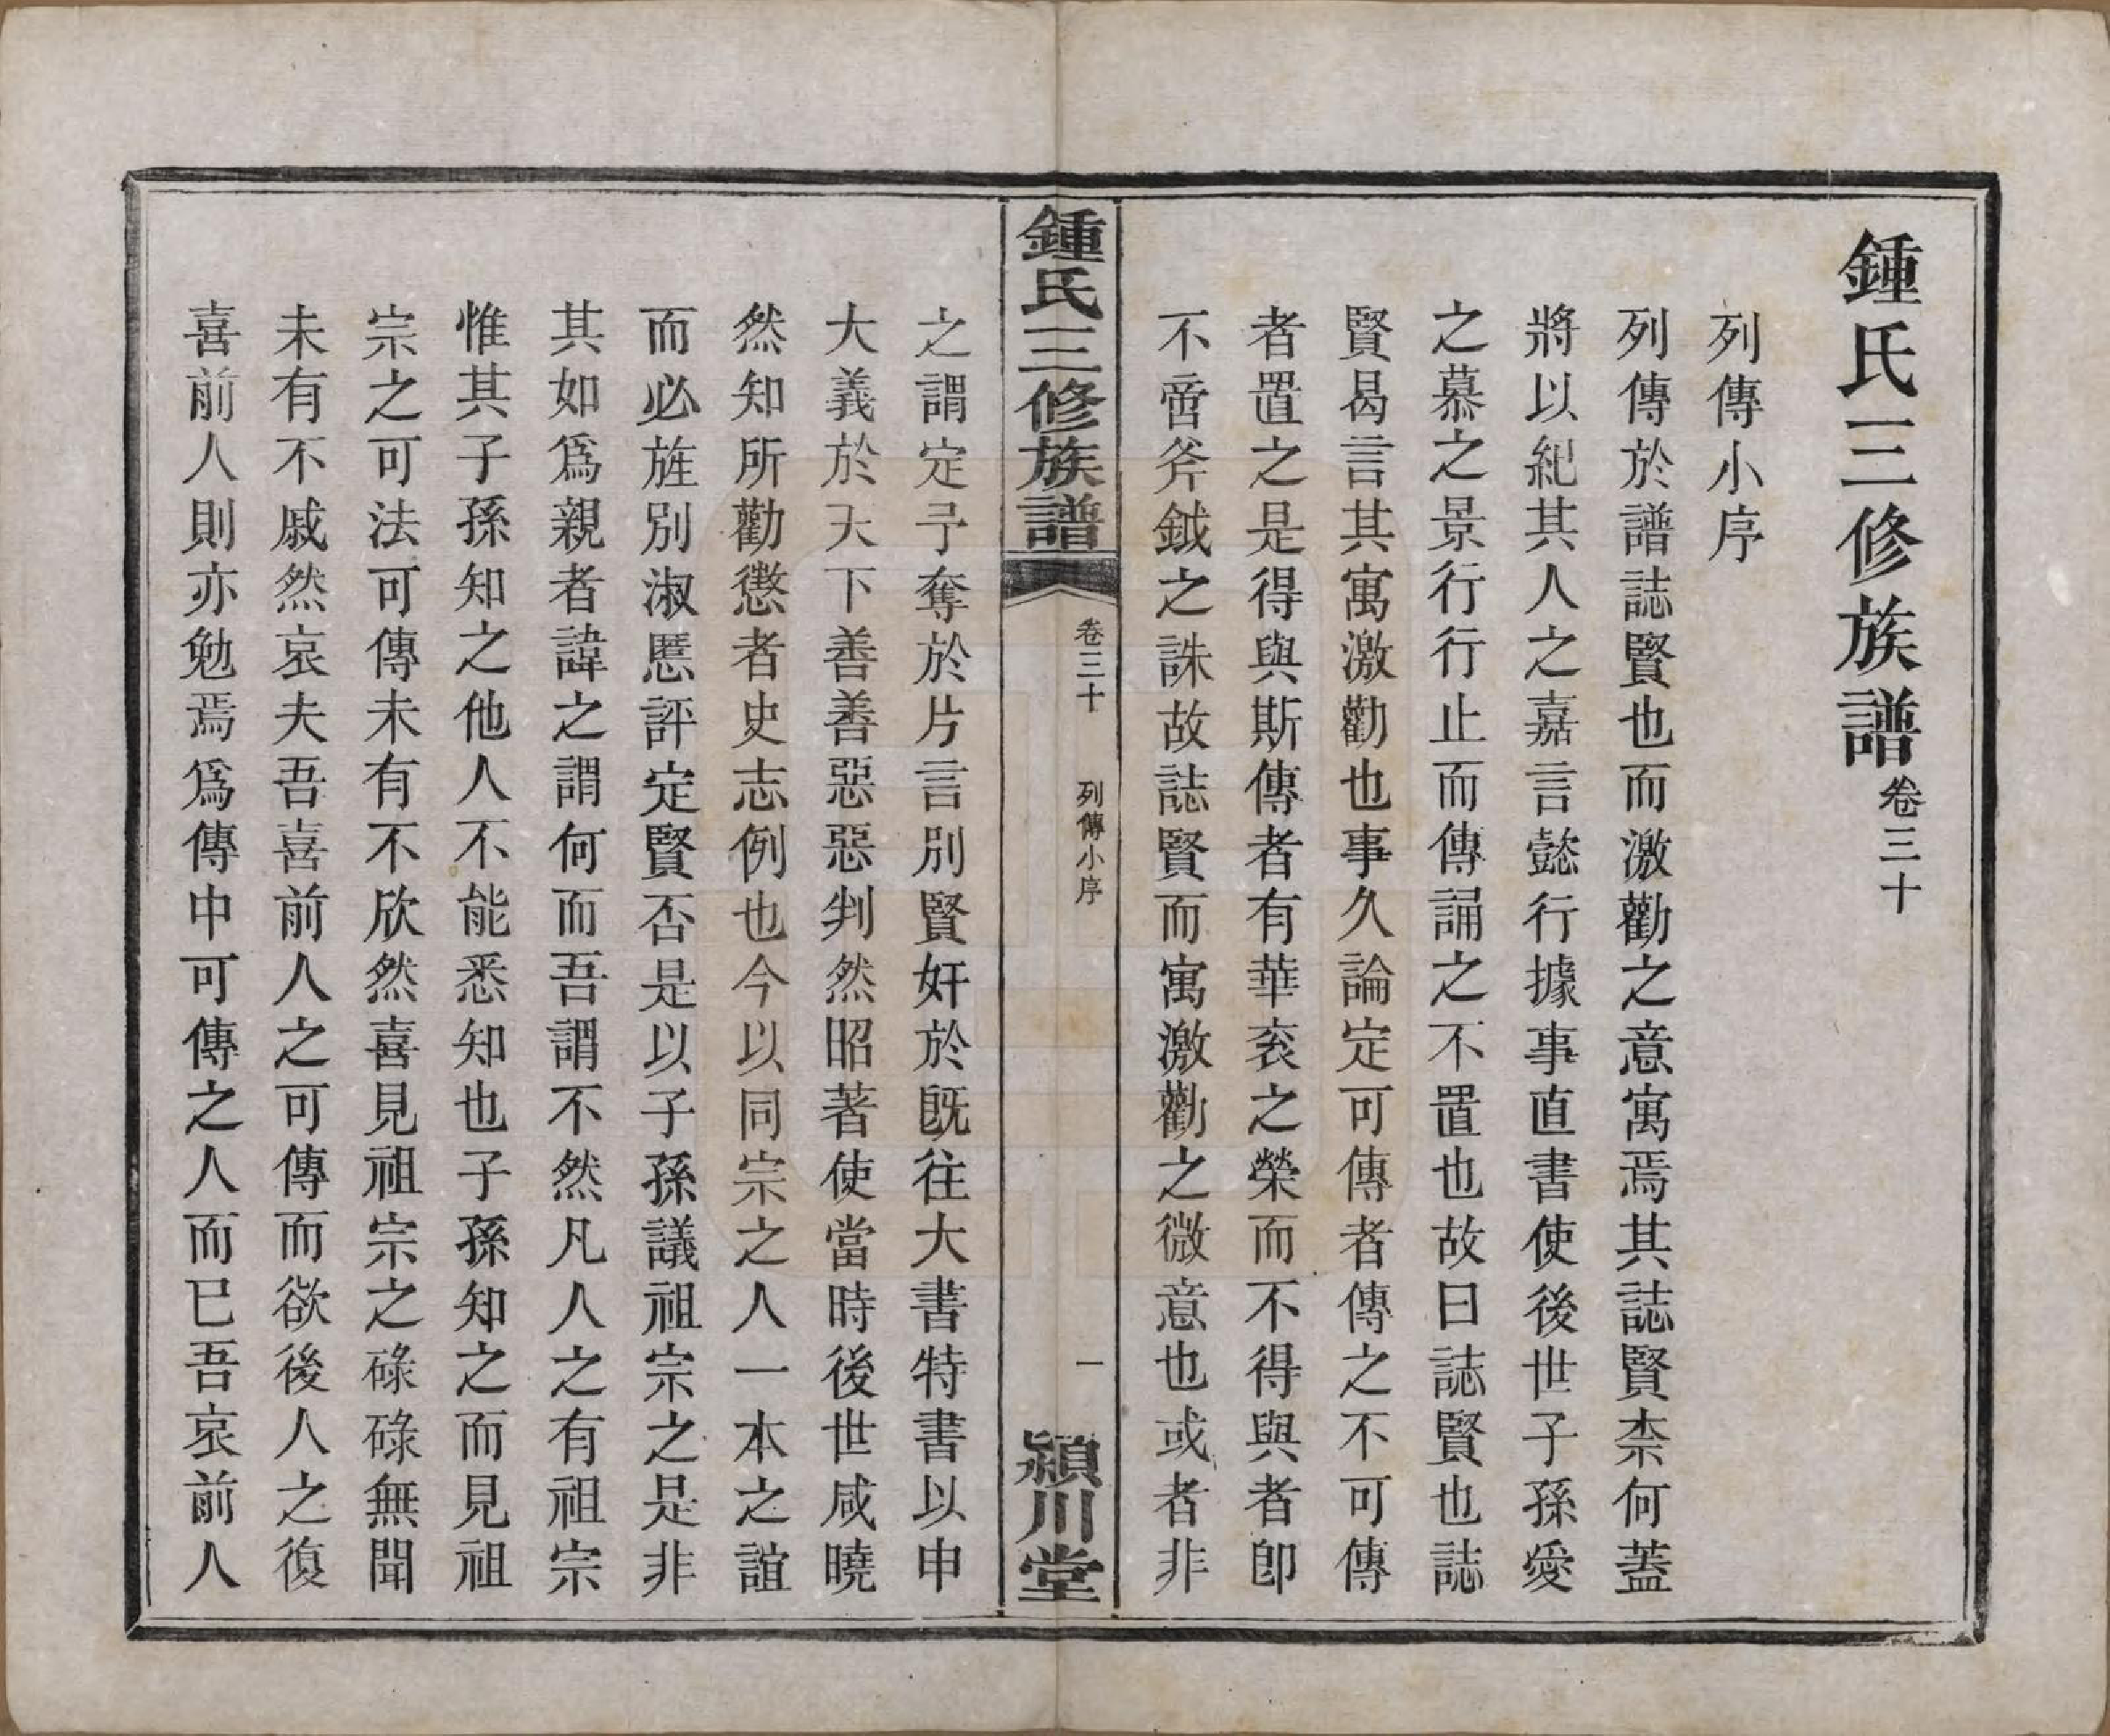 鍾氏三修族譜卷三十
列傳小序
列傳於譜誌賢也而激勸之意寓焉其誌賢柰何蓋
將以紀其人之嘉言懿行據事直書使後世子孫愛
之慕之景行行止而傳誦之不置也故曰誌賢也誌
賢曷言其寓激勸也事久論定可傳者傳之不可傳
者置之是得與斯傳者有華衮之榮而不得與者卽
不啻斧鉞之誅故誌賢而寓激勸之微意也或者非
鍾氏三修族譜
卷三十
列傳小序
一
潁川堂
之謂定予奪於片言別賢奸於旣往大書特書以申
大義於天下善善惡惡判然昭著使當時後世咸曉
然知所勸懲者史志例也今以同宗之人一本之誼
而必旌別淑慝評定賢否是以子孫議祖宗之是非
其如爲親者諱之謂何而吾謂不然凡人之有祖宗
惟其子孫知之他人不能悉知也子孫知之而見祖
宗之可法可傳未有不欣然喜見祖宗之碌碌無聞
未有不戚然哀夫吾喜前人之可傳而欲後人之復
喜前人則亦勉焉爲傳中可傳之人而已吾哀前人